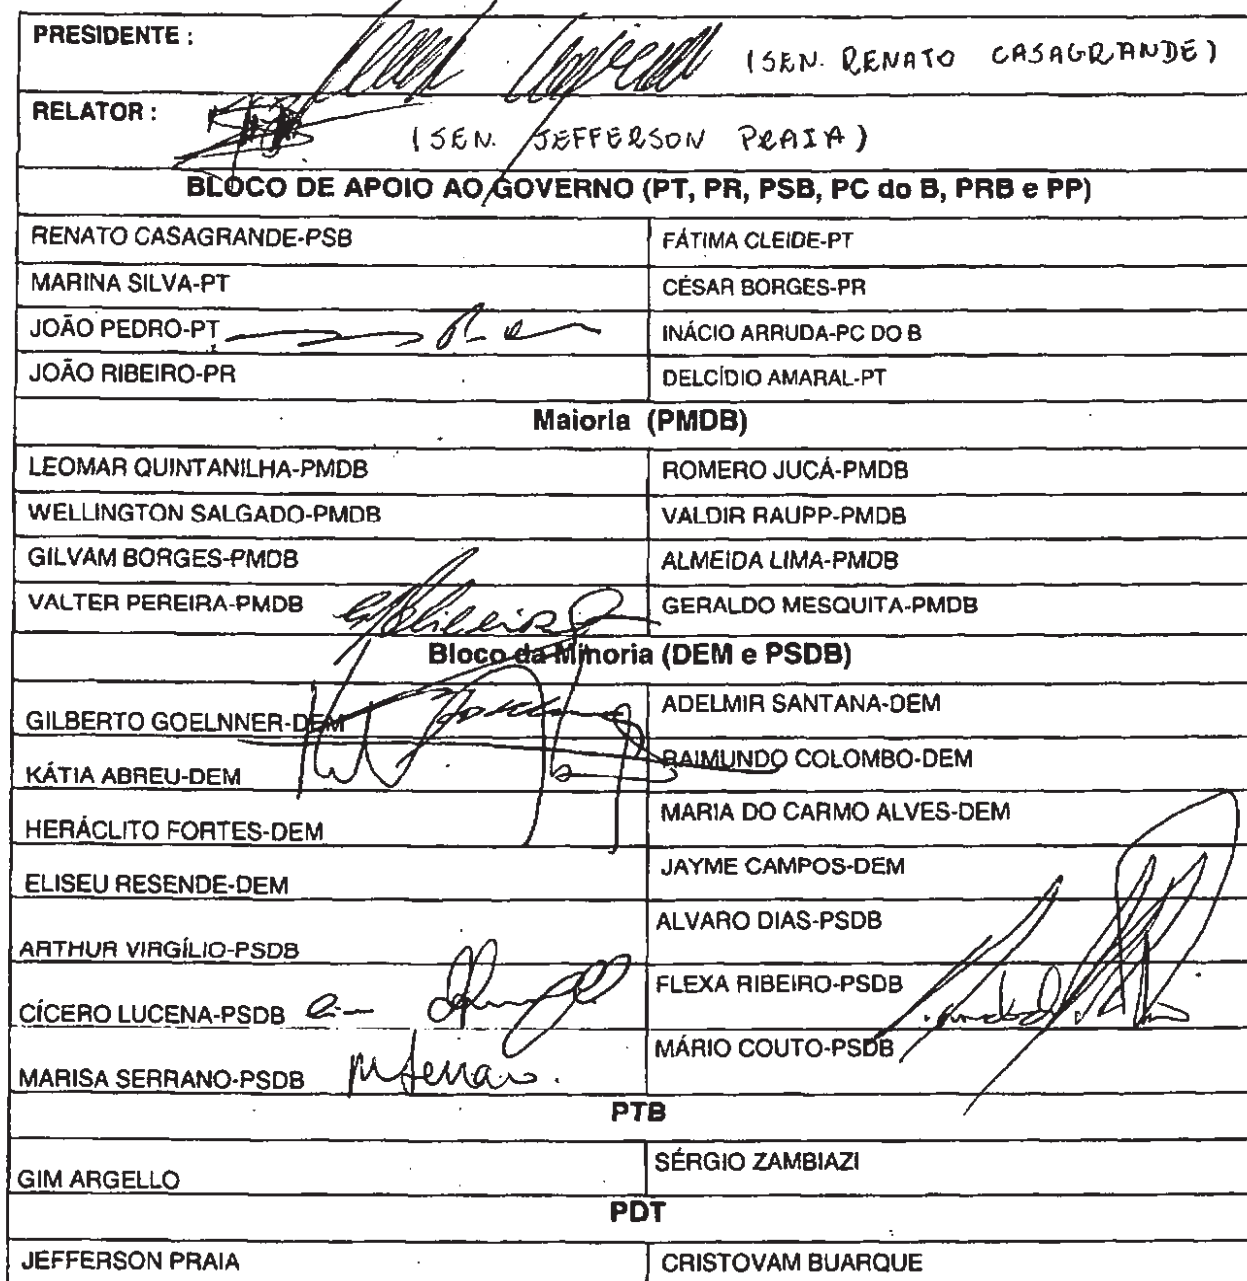 PRESIDENTE :
(SEN. RENATO CASAGRANDE)
RELATOR :
(SEN. JEFFERSON PRAIA)
BLOCO DE APOIO AO GOVERNO (PT, PR, PSB, PC do B, PRB e PP)
RENATO CASAGRANDE-PSB FÁTIMA CLEIDE-PT
MARINA SILVA-PT CÉSAR BORGES-PR
JOÃO PEDRO-PT INÁCIO ARRUDA-PC DO B
JOÃO RIBEIRO-PR DELCÍDIO AMARAL-PT
Maioria (PMDB)
LEOMAR QUINTANILHA-PMDB ROMERO JUCÁ-PMDB
WELLINGTON SALGADO-PMDB VALDIR RAUPP-PMDB
GILVAM BORGES-PMDB ALMEIDA LIMA-PMDB
VALTER PEREIRA-PMDB GERALDO MESQUITA-PMDB
Bloco da Minoria (DEM e PSDB)
GILBERTO GOELNNER-DEM ADELMIR SANTANA-DEM
KÁTIA ABREU-DEM RAIMUNDO COLOMBO-DEM
HERÁCLITO FORTES-DEM MARIA DO CARMO ALVES-DEM
ELISEU RESENDE-DEM JAYME CAMPOS-DEM
ARTHUR VIRGÍLIO-PSDB ALVARO DIAS-PSDB
CÍCERO LUCENA-PSDB FLEXA RIBEIRO-PSDB
MARISA SERRANO-PSDB MÁRIO COUTO-PSDB
PTB
GIM ARGELLO SÉRGIO ZAMBIAZI
PDT
JEFFERSON PRAIA CRISTOVAM BUARQUE